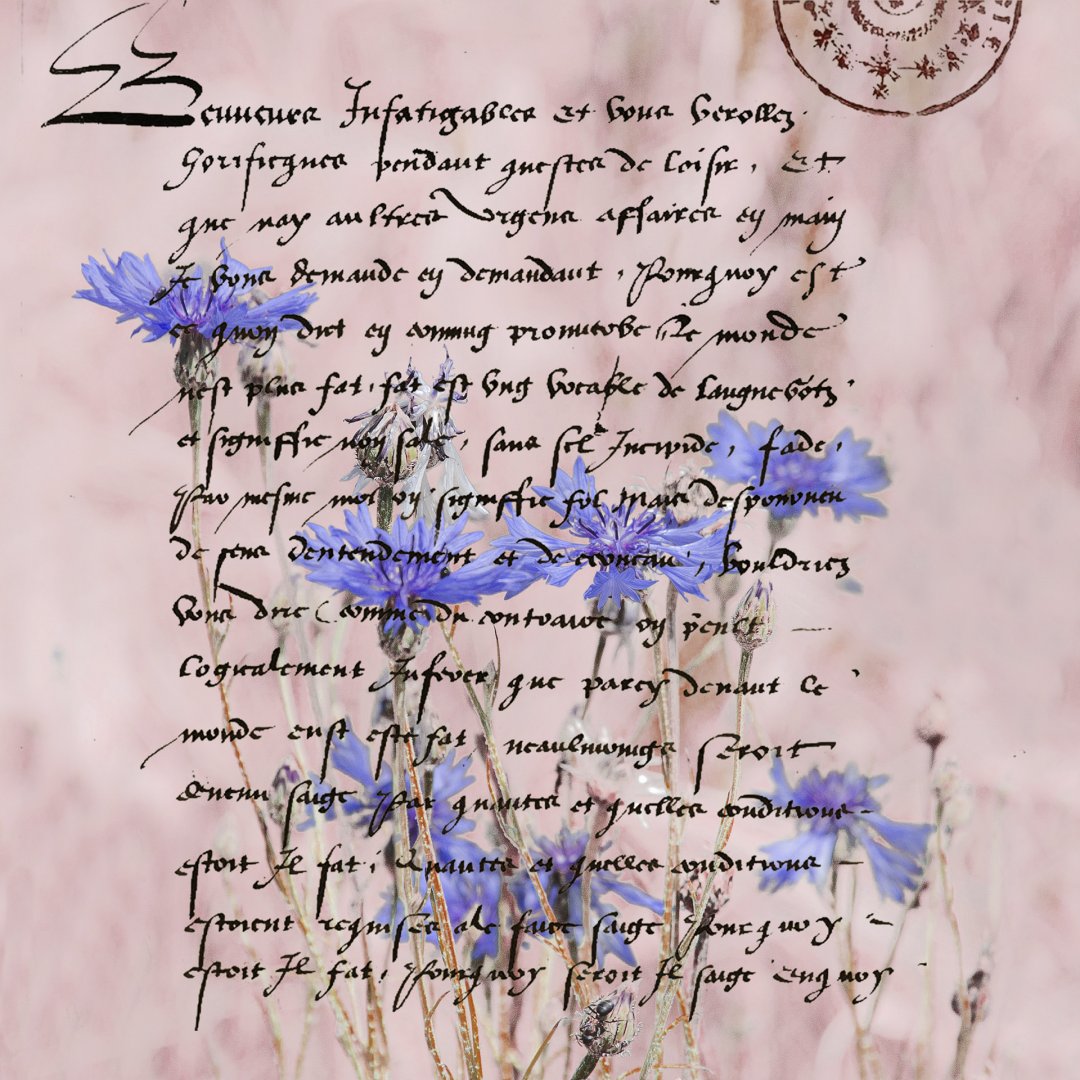 Beuveurs Infatigables Et vous verollez
Gorificques pendant questes de loisir, Et
que nay aultres Urgens affaires en main
Je vous demande en demandant, Pourquoy est
ce quon dict en commung proverbe Le monde
nest plus fat, fat est ung vocable de Languegotz
et signiffie non sale, sans sel Incipide, fade,
Par mesme moyen signiffie fol Mais despourveu
de sens dentendement et de cerveau, vouldriez
vous dire (comme du contraire on peult
Logicalement Inferer que par cy devant le
monde eust este fat seroit
devenu saige Par quantes et quelles conditions
estoit Il fat, Quantes et quelles conditions
estoient requises a le faire saige Pourquoy
estoit Il fat, Pourquoy seroit Il saige Enquoy